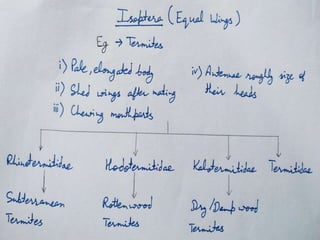 Isoptera (Equal Wings)
Eg → Termites
i) Pale, elongated body
ii) Shed wings after mating
iii) Chewing mouthparts
iv) Antennae roughly size of
their heads
Rhinotermitidae Hodotermitidae Kalotermitidae Termitidae
Subterranean Termites
Rottenwood Termites
Dry/Dampwood Termites